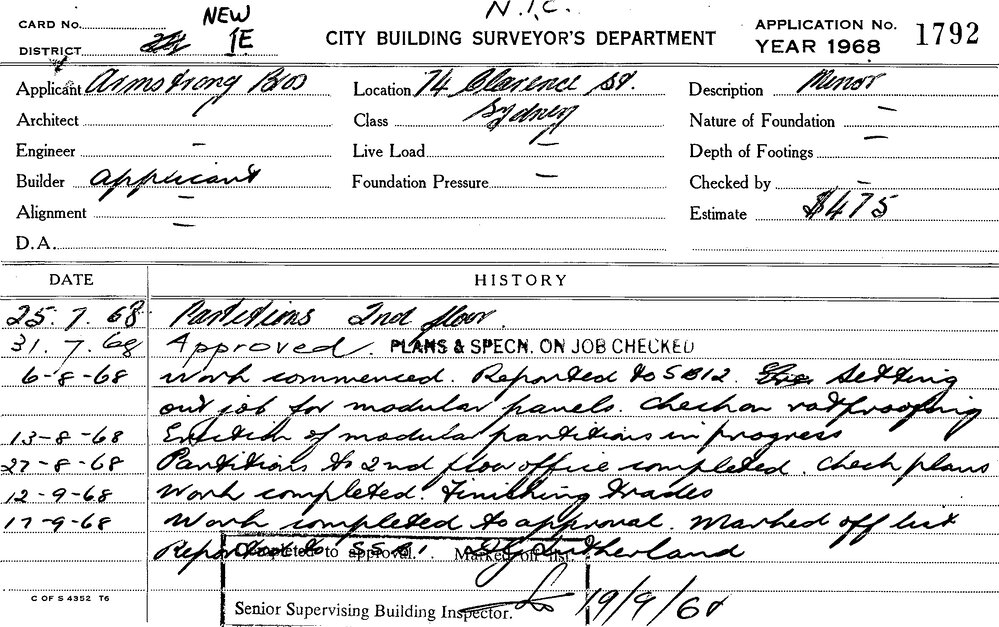 N.I.C.
CARD No. NEW
CITY BUILDING SURVEYOR'S DEPARTMENT
APPLICATION No. 1792
DISTRICT 1E
YEAR 1968
Applicant Armstrong Bros Location 74 Clarence St. Description Minor
Architect Class Sydney Nature of Foundation —
Engineer — Live Load — Depth of Footings —
Builder applicant Foundation Pressure — Checked by —
Alignment — Estimate $475
D.A. —
DATE HISTORY
25.7.68 Partitions 2nd floor.
31.7.68 Approved. PLANS & SPECN. ON JOB CHECKED
6-8-68 Work commenced. Reported to SB12. Setting
out job for modular panels. Check on ratproofing
13-8-68 Erection of modular partitions in progress
27-8-68 Partitions to 2nd floor office completed. Check plans
12-9-68 Work completed. Finishing trades
17-9-68 Work completed to approval. Marked off list
Completed to approval. Marked off list.
Sutherland
Senior Supervising Building Inspector. 19/9/68
C OF S 4352 T6